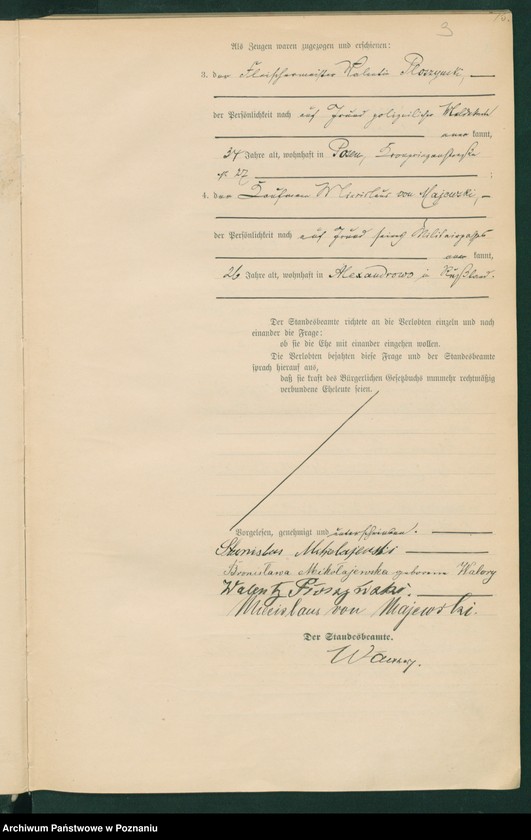 3
Als Zeugen waren zugezogen und erschienen:
3. der Fleischermeister Valentin Ploszynski,
der Persönlichkeit nach auf Grund polizeilicher Meldekarte
kannt,
34 Jahre alt, wohnhaft in Posen, Kronprinzenstraße
27;
4. der Kaufmann Miecislaus von Majewski,
der Persönlichkeit nach auf Grund seines Militairpasses
kannt,
26 Jahre alt, wohnhaft in Alexandrowo in Rußland.
Der Standesbeamte richtete an die Verlobten einzeln und nach
einander die Frage:
ob sie die Ehe mit einander eingehen wollen.
Die Verlobten bejahten diese Frage und der Standesbeamte
sprach hierauf aus,
daß sie kraft des Bürgerlichen Gesetzbuchs nunmehr rechtmäßig
verbundene Eheleute seien.
Vorgelesen, genehmigt und unterschrieben.
Stanislas Mikolajewski
Bronisława Mikołajewska geborene Walory
Walenty
Miecislaus von Majewski.
Der Standesbeamte.
Archiwum Państwowe w Poznaniu